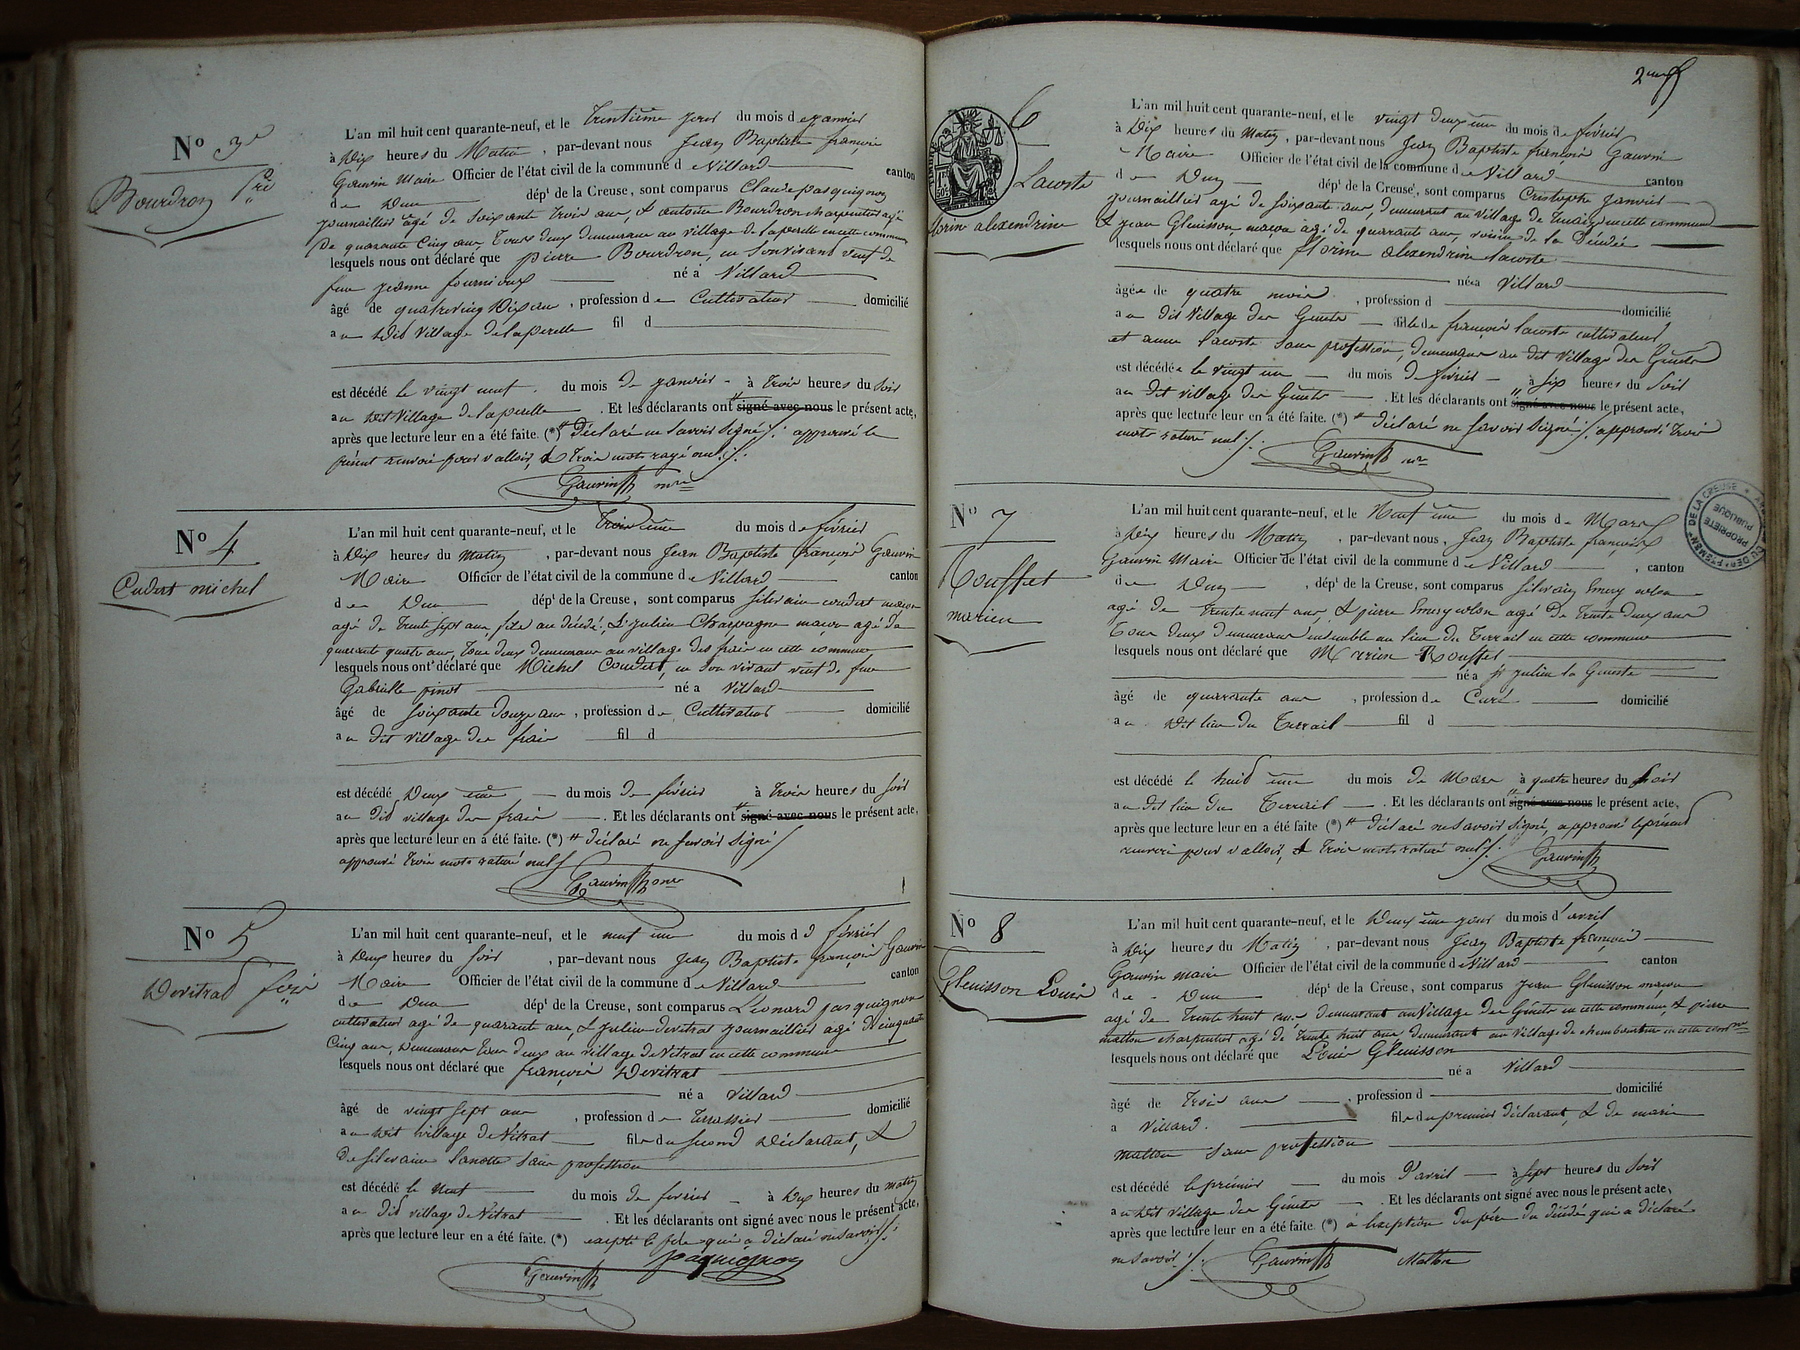 N° 3e
Bourdron Pre
L'an mil huit cent quarante-neuf, et le Trentième jour du mois de janvier
à Dix heures du Matin, par-devant nous Jean Baptiste françois
Gauvin Maire Officier de l'état civil de la commune de Villard canton
de Dun dépt de la Creuse, sont comparus Claude pasquignon
journallier âgé de soixante trois ans, & antoine Bourdron charpentier agé
de quarante cinq ans, Tous deux demeurant au village de laperelle en cette commune
lesquels nous ont déclaré que pierre Bourdron, en son vivant veuf de
feue jeanne fournioux né à Villard
âgé de quatrevingt Dix ans, profession de Cultivateur domicilié
au Dit Village de laperelle fil d
est décédé le vingt neuf du mois de janvier à Trois heures du Soir
au Dit Village de laperelle. Et les déclarants ont signé avec nous le présent acte,
après que lecture leur en a été faite. (*) Déclaré ne savoir signé ; approuvé le
présent renvoi pour valloir, & Trois mots rayé nul.
Gauvin mre
N° 4
Cudert michel
L'an mil huit cent quarante-neuf, et le Troisième du mois de février
à Dix heures du Matin, par-devant nous Jean Baptiste françois Gauvin
Maire Officier de l'état civil de la commune de Villard canton
de Dun dépt de la Creuse, sont comparus Silvain coudert maçon
agé de Trente sept ans, fils au décédé, & julien Charpagne maçon agé de
quarante quatre ans, Tous deux demeurant au village des frais en cette commune
lesquels nous ont déclaré que Michel Coudert, en son vivant veuf de feue
Gabrielle pinot né à Villard
âgé de soixante douze ans, profession de Cultivateur domicilié
au dit village des frais fil d
est décédé Deuxième du mois de février à Trois heures du soir
au dit village des frais. Et les déclarants ont signé avec nous le présent acte,
après que lecture leur en a été faite. (*) déclaré ne savoir signé
approuvé trois mots raturé nul
Gauvin mre
N° 5
Devitrat fois
L'an mil huit cent quarante-neuf, et le neuvième du mois d février
à Deux heures du soir, par-devant nous Jean Baptiste françois Gauvin
Maire Officier de l'état civil de la commune de Villard canton
de Dun dépt de la Creuse, sont comparus Léonard pasquignon
cultivateur agé de quarante ans, & julien devitrat journallier agé de cinquante
Cinq ans, Demeurant Tous deux au village de Vitrat en cette commune
lesquels nous ont déclaré que françois Devitrat
né à Villard
âgé de vingt sept ans, profession de Terrassier domicilié
au Dit Village de Vitrat fils du second Déclarant, &
de silvaine lanotte sans profession
est décédé le Neuf du mois de fevrier à Dix heures du matin
au Dit village de Vitrat. Et les déclarants ont signé avec nous le présent acte,
après que lecture leur en a été faite. (*) excepté le père qui a déclaré ne savoir
Gauvin pasquignon
2me
6
Lacoste
florine alexendrine
L'an mil huit cent quarante-neuf, et le vingt deuxième du mois de février
à Dix heures du Matin, par-devant nous Jean Baptiste françois Gauvin
Maire Officier de l'état civil de la commune de Villard canton
de Dun dépt de la Creuse, sont comparus Cristophe janvier
journallier agé de soixante ans, demeurant au village de en cette commune
& jean Glenisson maçon agé de quarante ans, voisin de la Décédée
lesquels nous ont déclaré que florine alexendrine lacoste
née à Villard
âgée de quatre mois, profession d domicilié
au dit Village des Genete fille de françois lacoste cultivateur
et anne lacoste sans profession, demeurant au dit Village des Genete
est décédée le vingt un du mois de février à six heures du Soir
au dit village des Genete. Et les déclarants ont signé avec nous le présent acte,
après que lecture leur en a été faite. (*) déclaré ne savoir signé ; approuvé trois
mots raturé nul
Gauvin mre
N° 7
Rouffet
marien
L'an mil huit cent quarante-neuf, et le Neuvième du mois de Mars
à Dix heures du Matin, par-devant nous, Jean Baptiste françois
Gauvin Maire Officier de l'état civil de la commune de Villard, canton
de Dun, dépt de la Creuse, sont comparus Silvain Emery colon
agé de Trente neuf ans, & pierre Emery colon agé de Trente Deux ans
Tous deux demeurant ensemble au lieu du Terrail en cette commune
lesquels nous ont déclaré que Marien Rouffet
né à st julien la Genete
âgé de quarante ans, profession de Curé domicilié
au Dit lieu du Terrail fil d
est décédé le huitième du mois de Mars à quatre heures du soir
au dit lieu du Terrail. Et les déclarants ont signé avec nous le présent acte,
après que lecture leur en a été faite (*) déclaré ne savoir signé, approuvé le présent
renvoi pour valloir, & Trois mots raturé nul
Gauvin
PROPRIÉTÉ PUBLIQUE
N° 8
Glenisson Louis
L'an mil huit cent quarante-neuf, et le Deuxième jour du mois d'avril
à Dix heures du Matin, par-devant nous Jean Baptiste françois
Gauvin maire Officier de l'état civil de la commune de Villard canton
de Dun dépt de la Creuse, sont comparus jean Glenisson maçon
agé de Trente huit ans demeurant au Village des Genete en cette commune, & pierre
matton charpentier agé de Trente huit ans demeurant au Village de en cette comme
lesquels nous ont déclaré que Louis Glenisson
né à Villard
âgé de Trois ans, profession d domicilié
a Villard. fils du premier déclarant, & de marie
matton sans profession
est décédé le premier du mois d'avril à sept heures du Soir
au Dit Village des Genete. Et les déclarants ont signé avec nous le présent acte,
après que lecture leur en a été faite (*) à l'exception du père du décédé qui a déclaré
ne savoir
Gauvin Matton